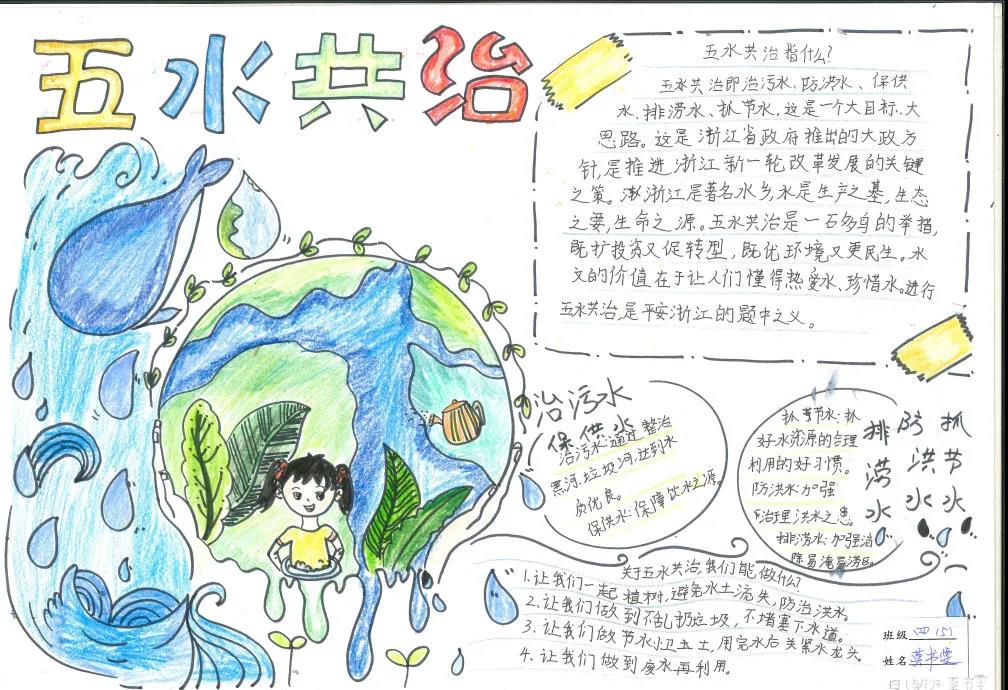 五水共治
五水共治指什么?
五水共治即治污水、防洪水、保供
水、排涝水、抓节水,这是一个大目标、大
思路。这是浙江省政府推出的大政方
针,是推进浙江新一轮改革发展的关键
之策。浙江是著名水乡,水是生产之基,生态
之要,生命之源。五水共治是一石多鸟的举措,
既扩投资又促转型,既优环境又更民生。水
文的价值在于让人们懂得热爱水、珍惜水。进行
五水共治,是平安浙江的题中之义。
治污水
保供水
治污水:通过整治
黑河,垃圾河,达到水
质优良。
保供水:保障饮水之源。
抓节水:抓
好水资源的合理
利用的好习惯。
防洪水:加强
治理洪水之患。
排涝水:加强消
除易淹易涝区。
排涝水
防洪水
抓节水
关于五水共治,我们能做什么?
1.让我们一起植树,避免水土流失,防治洪水。
2.让我们做到不乱扔垃圾,不堵塞下水道。
3.让我们做节水小卫士,用完水后关紧水龙头。
4.让我们做到废水再利用。
班级 四(5)
姓名